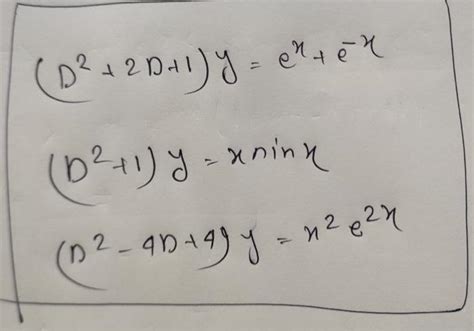 (D² + 2D + 1) y = eˣ + e⁻ˣ
(D² + 1) y = x sin x
(D² - 4D + 4) y = x² e²ˣ